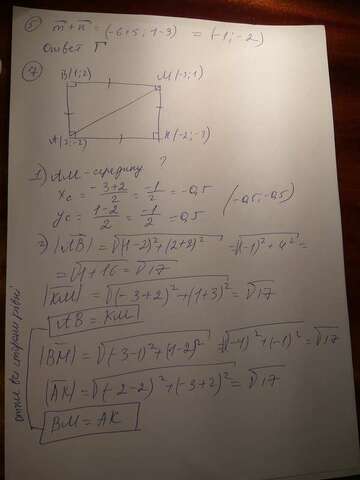 5) m̄+n̄ = (-6+5; 1-3) = (-1; -2)
ответ Г
7)
B(1;2) M(-3;1)
A(2;-2) K(-2;-3)
1) AM - середину ?
Xc = (-3+2)/2 = -1/2 = -0,5
yc = (1-2)/2 = -1/2 -0,5 (-0,5; -0,5)
2) |AB| = √(1-2)² + (2+2)² = √(-1)² + 4² =
= √1+16 = √17
|KM| = √(-3+2)² + (1+3)² = √17
AB = KM
|BM| = √(-3-1)² + (1-2)² = √(-4)² + (-1)² = √17
|AK| = √(-2-2)² + (-3+2)² = √17
BM = AK
отже всі сторони рівні